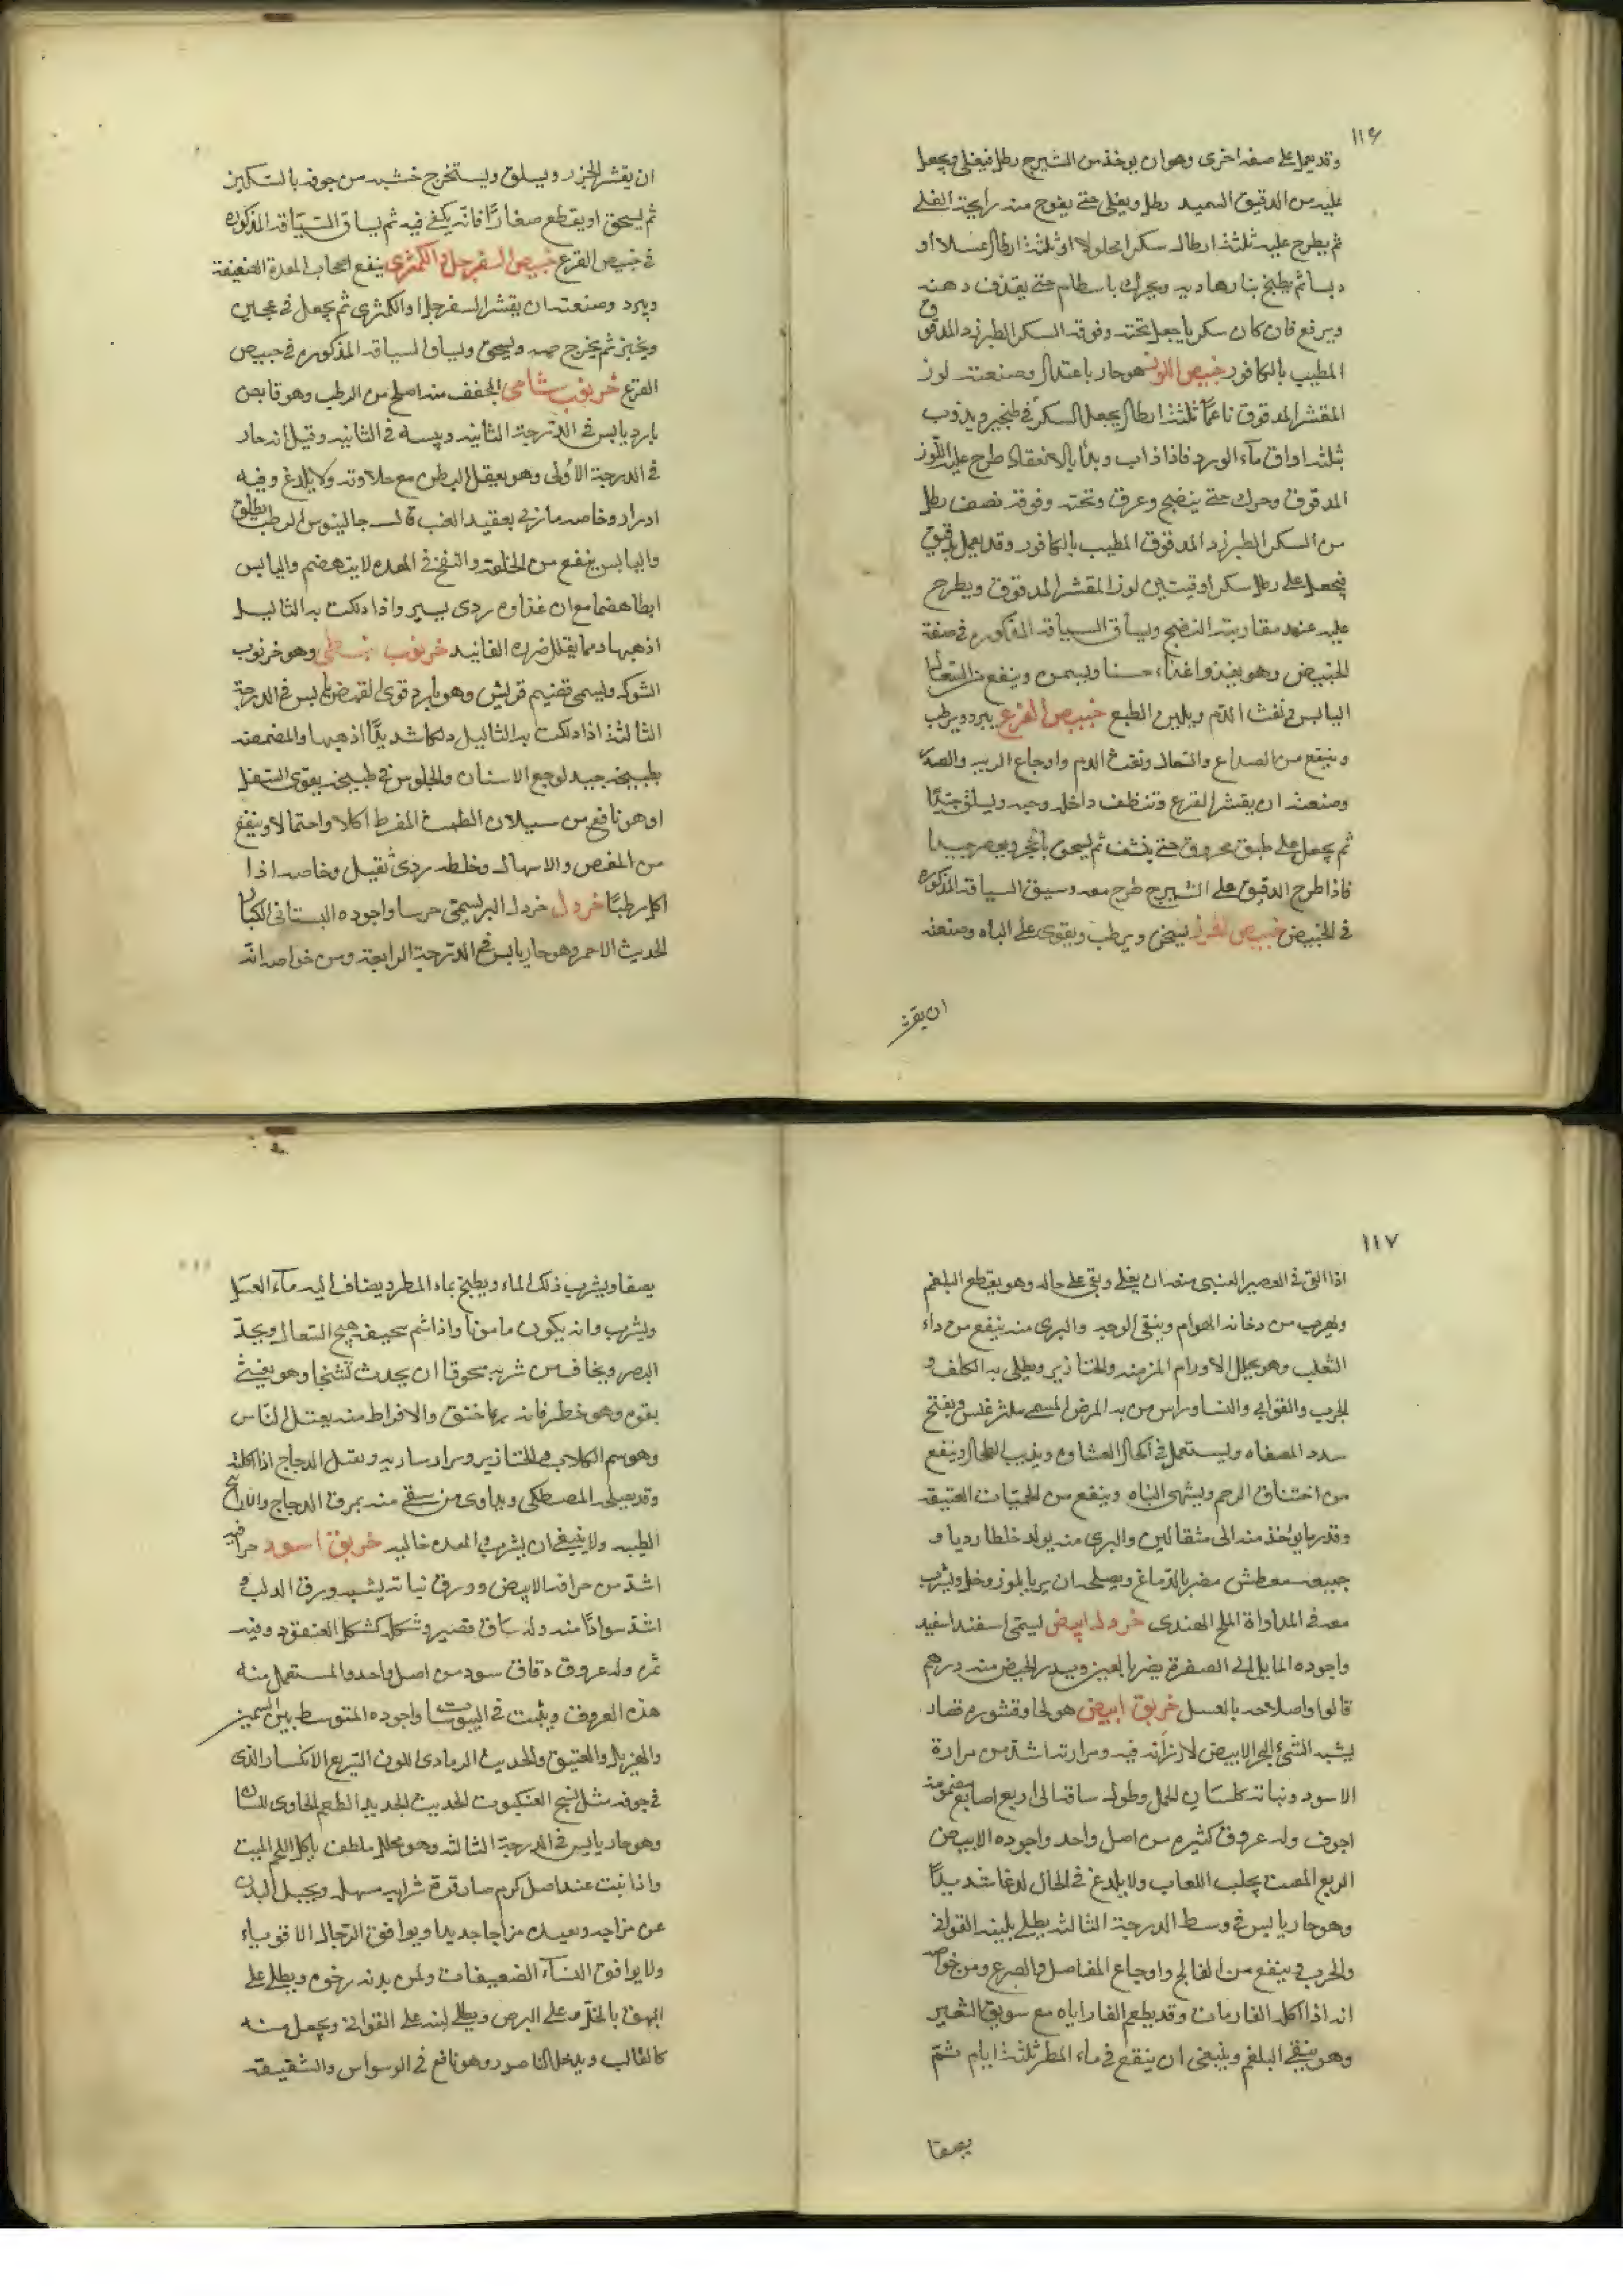 ١١٦
وقد يعمل على صفة اخرى وهو ان يوخذ من الشيرج رطل فيغلى ويجعل
عليه من الدقيق السميد رطل ويغلى حتى يفوح منه رايحة القلى
ثم يطرح عليه ثلثة ارطال سكرا محلولا او ثلثة ارطال عسلا او
دبسا ثم يطبخ بنار هاديه ويحرك باسطام حتى يقذف دهنه
ويرفع فان كان سكريا جعل تحته وفوقه السكر الطبرزد المدقوق
المطيب بالكافور خبيص اللوز هو حار باعتدال وصنعته لوز
المقشر المدقوق ناعما ثلثة ارطال يجعل السكر في طنجير ويذوب
بثلثه اواق مآء الورد فاذا ذاب وبدأ بالانعقاد طرح عليه اللوز
المدقوق وحرك حتى ينضج وعرق وتحته وفوقه نصف رطل
من السكر الطبرزد المدقوق المطيب بالكافور وقد يعمل بدقيق
فيجعل على رطل سكر اوقيتين لوز المقشر المدقوق ويطرح
عليه عند مقاربته النضج ويساق السياقه المذكوره في صفة
الخبيص وهو يغذوا غذاء حسنا ويسمن وينفع من السعال
اليابس ونفث الدم ويلين الطبع خبيص القرع يبرد ويرطب
وينفع من الصداع والسعال ونفث الدم واوجاع الريه والصدر
وصنعته ان يقشر القرع وتنظف داخله وحبه ويسلق جيدا
ثم يجعل على طبق مخروق حتى ينشف ثم يسحق بالحجر ويعصر جيدا
فاذا طرح الدقيق على الشيرج طرح معه وسيق السياقه المذكوره
في الخبيص خبيص الجزر يسخن ويرطب ويقوى على الباه وصنعته
ان يقشر
ان يقشر الجزر ويسلق ويستخرج خشبه من جوفه بالسكين
ثم يسحق او يقطع صغارا فانه يكفى فيه ثم يساق السياقه المذكوره
في خبيص القرع خبيص السفرجل والكمثرى ينفع اصحاب المعدة الضعيفة
ويبرد وصنعته ان يقشر السفرجل او الكمثرى ثم يجعل في عجين
ويخبز ثم يخرج منه ويسحق ويساق السياقه المذكوره في خبيص
القرع خرنوب شامى المجفف منه اصلح من الرطب وهو قابض
بارد يابس في الدرجة الثانيه ويبسه في الثانيه وقيل انه حار
في الدرجة الأولى وهو يعقل البطن مع حلاوته ولا يلدغ وفيه
ادرار وخاصه ما ربى بعقيد العنب قال جالينوس الرطب يطلق
واليابس ينفع من الخلفه والنفخ في المعده لا ينهضم واليابس
ابطا هضما مع ان غذاوه ردى يسير واذا دلكت به الثاليل
اذهبها ومما يقلل ضرره الفانيد خرنوب نبطى وهو خرنوب
الشوك ويسمى قضيم قريش وهو بارد قوى القبض يابس في الدرجة
الثالثة اذا دلكت به الثاليل دلكا شديدا اذهبها والمضمضه
بطبيخه جيد لوجع الاسنان والجلوس في طبيخه يقوى السفل
او هو نافع من سيلان الطمث المفرط اكلا واحتمالا وينفع
من المغص والاسهال وخلطه ردى ثقيل وخاصه اذا
اكل رطبا خردل خردل البر يسمى حرسا واجوده البستانى الكبار
الحديث الاحمر وهو حار يابس في الدرجة الرابعة ومن خواصه انه
١١٧
اذا القى في العصير العنبى منعه ان يغلى وبقى على حاله وهو يقطع البلغم
ويهرب من دخانه الهوام وينقى الوجه والبرى منه ينفع من داء
الثعلب وهو يحلل الاورام المزمنه والخنازير ويطلى به الكلف و
الجرب والقوابي والنسا وراس من به المرض المسمى ليثرغس ويفتح
سدد المصفاه ويستعمل في اكحال الغشاوه ويذيب الطحال وينفع
من اختناق الرحم ويشهى الباه وينفع من الحميات العتيقه
وقدر ما يوخذ منه الى مثقالين والبرى منه يولد خلطا رديا و
جميعه معطش مضر بالدماغ ويصلحه ان يربا بلوز وخل ويشرب
معه في المداواة الملح الهندى خردل ابيض يسمى اسفند اسفيد
واجوده المايل الى الصفرة يضر بالعين ويدر الحيض منه درهم
قالوا واصلاحه بالعسل خربق ابيض هو لحا وقشوره قصار
يشبه الشئ الجير الابيض لا رزانه فيه ومرارته اشد من مرارة
الاسود ونباته كلسان الحمل وطول ساقه الى اربع اصابع مضمومه
اجوف وله عروق كثيره من اصل واحد واجوده الابيض
السريع التفتت يجلب اللعاب ولا يلدغ في الحال لدغا شديدا
وهو حار يابس في وسط الدرجة الثالثه يطلى بلبنه القوابي
والجرب وينفع من الفالج واوجاع المفاصل والصرع ومن خواصه
انه اذا اكله الفار مات وقد يطعم الفار اياه مع سويق الشعير
وهو ينقى البلغم وينبغى ان ينقع في ماء المطر ثلثة ايام ثم
يصفا
يصفا ويشرب ذلك الماء ويطبخ بماء المطر ويضاف اليه مآء العسل
ويشرب وانه يكون مامونا واذا شم سحيقه هيج السعال ويحد
البصر ويخاف من شربه مسحوقا ان يحدث تشنجا وهو يقيئ
بقوه وهو خطر فانه ربما خنق والافراط منه يقتل الناس
وهو سم الكلاب والخنازير ومرار ساربيه ويقتل الدجاج اذا اكلته
وقد يصلحه المصطكى ويداوى من سقى منه بمرق الدجاج والاراييح
الطيبه ولا ينبغى ان يشرب والمعده خاليه خربق اسود حرافته
اشد من حرافه الابيض وورق نباته يشبه ورق الدلب و
اشد سوادا منه وله ساق قصير وشكله كشكل العنقود وفيه
ثمره وله عروق دقاق سود من اصل واحد والمستعمل منه
هذه العروق وينبت في البيوسا واجوده المتوسط بين السمين
والهزيل والعتيق والحديث الرمادى اللون السريع الانكسار الذى
في جوفه مثل نسج العنكبوت الحديث الحديد الطعم الحاوى للسان
وهو حار يابس في الدرجة الثالثه وهو محلل ملطف ياكل اللحم الميت
واذا نبت عند اصل كرم صار قوة شرابه مسهله ويحيل البدن
عن مزاجه ويفيده مزاجا جديدا ويوافق الرجال الاقوياء
ولا يوافق النسآء الضعيفات ولمن بدنه رخوه ويطلى على
البهق بالخل وعلى البرص ويطلى لبنه على القوابي ويجعل منه
كالقالب ويدخل الناصور وهو نافع في الوسواس والشقيقه